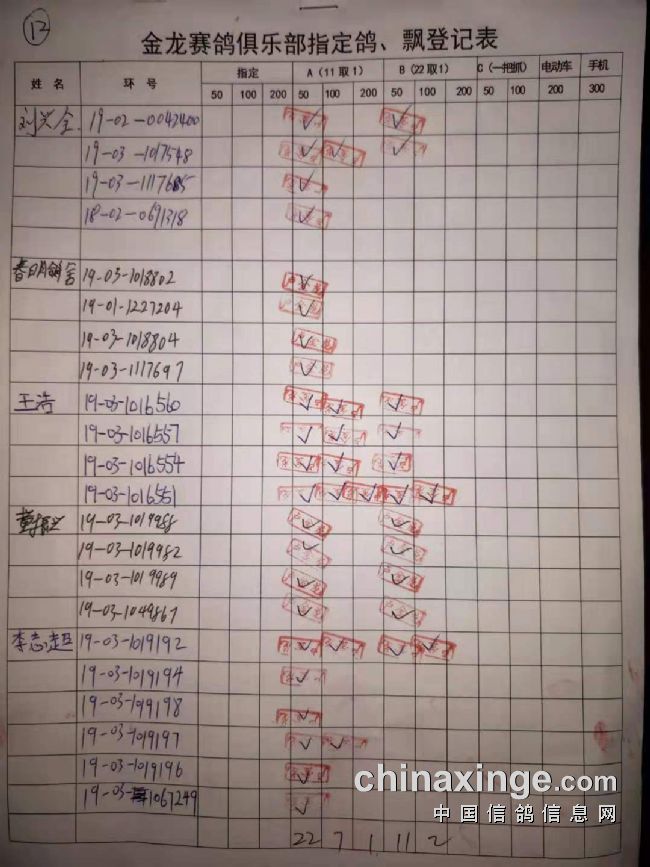 12
金龙赛鸽俱乐部指定鸽、飘登记表
姓名 环号 指定 A(11取1) B(22取1) C(一把抓) 电动车 手机
50 100 200 50 100 200 50 100 200 50 100 200 300
刘兴全 19-02-0042400
19-03-1017548
19-03-1117685
18-02-0691318
春明鸽舍 19-03-1018802
19-01-1227204
19-03-1018804
19-03-1117697
王浩 19-03-1016560
19-03-1016557
19-03-1016554
19-03-1016551
19-03-1019988
19-03-1019982
19-03-1019989
19-03-1049867
李志超 19-03-1019192
19-03-1019194
19-03-1019198
19-03-1019197
19-03-1019196
19-03-1067249
22 7 1 11 2
chinaxinge.com
中国信鸽信息网